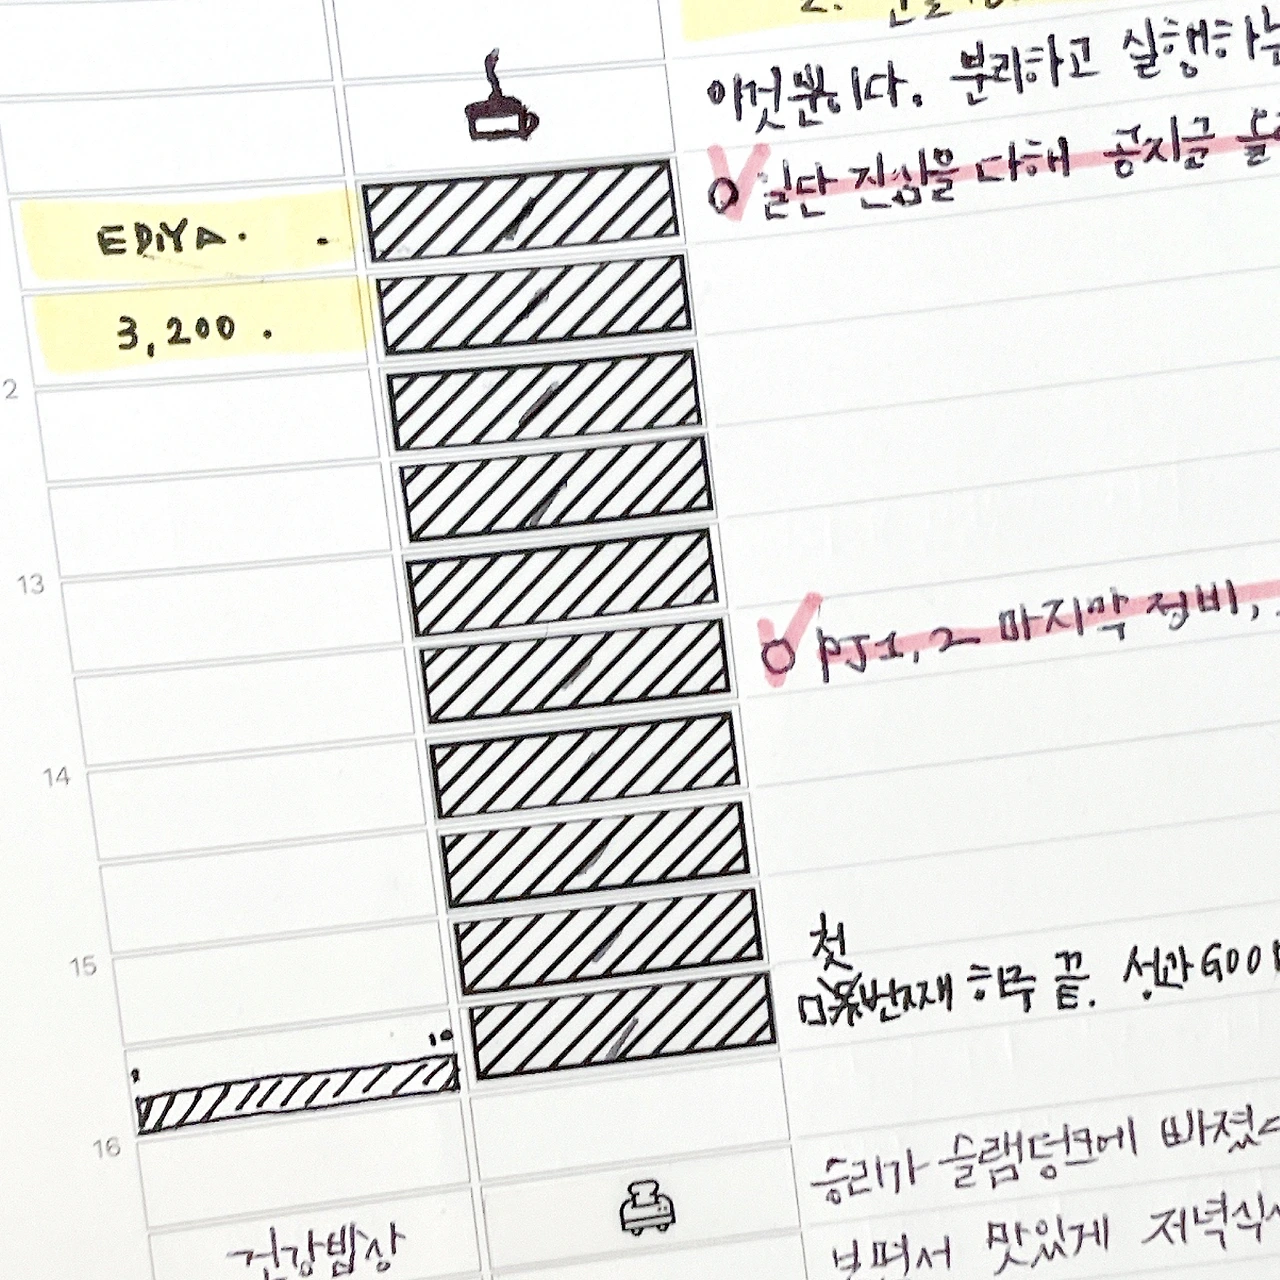 2.
이것뿐이다. 분리하고 실행하는
일단 진심을 다해 공지글
EDiYA.
3,200.
2
13
PJ1, 2 마지막 정비,
14
첫
번째 하루 끝. 성과 GOO
15
10
16
승리가 슬램덩크에 빠졌
건강밥상
보면서 맛있게 저녁식